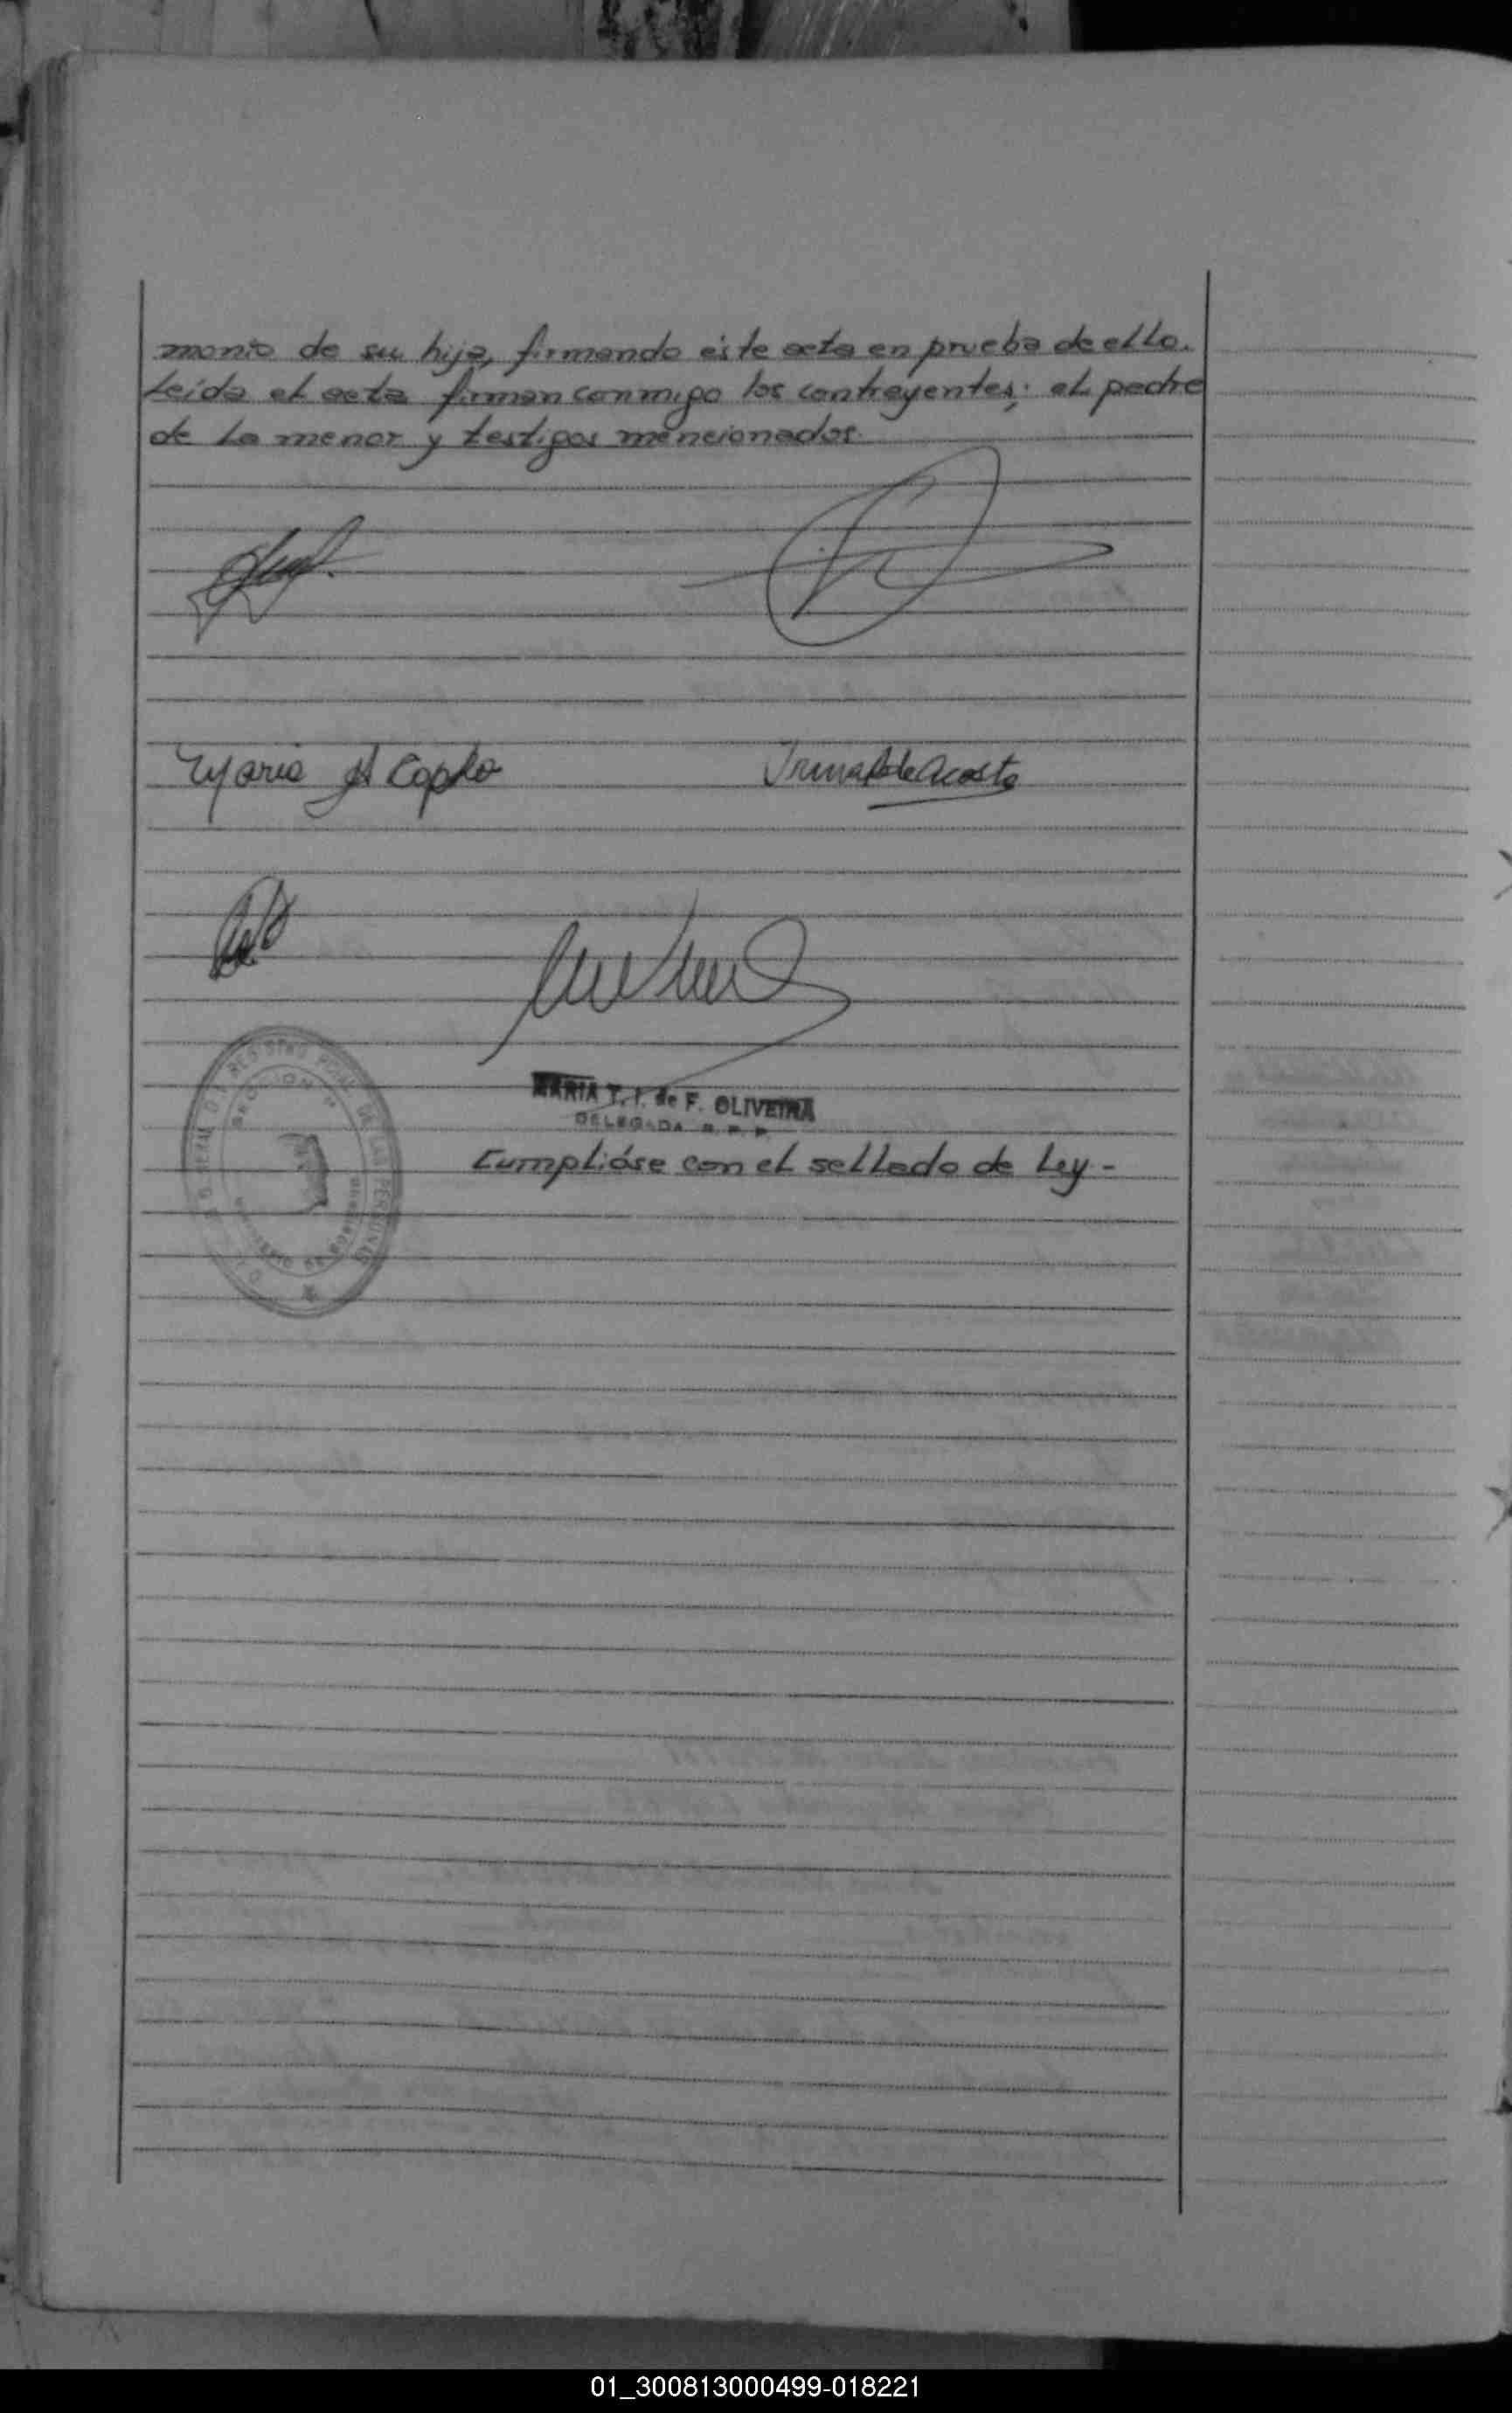 monio de su hija, firmando éste acta en prueba de ello.
Leída el acta firman conmigo los contrayentes; el padre
de la menor y testigos mencionados.
Maria A
de Acosta
MARIA T. I. de F. OLIVEIRA
DELEGADA R. P. P.
REGISTRO DE LAS PERSONAS
SECCION
Cumplióse con el sellado de Ley -
01_300813000499-018221